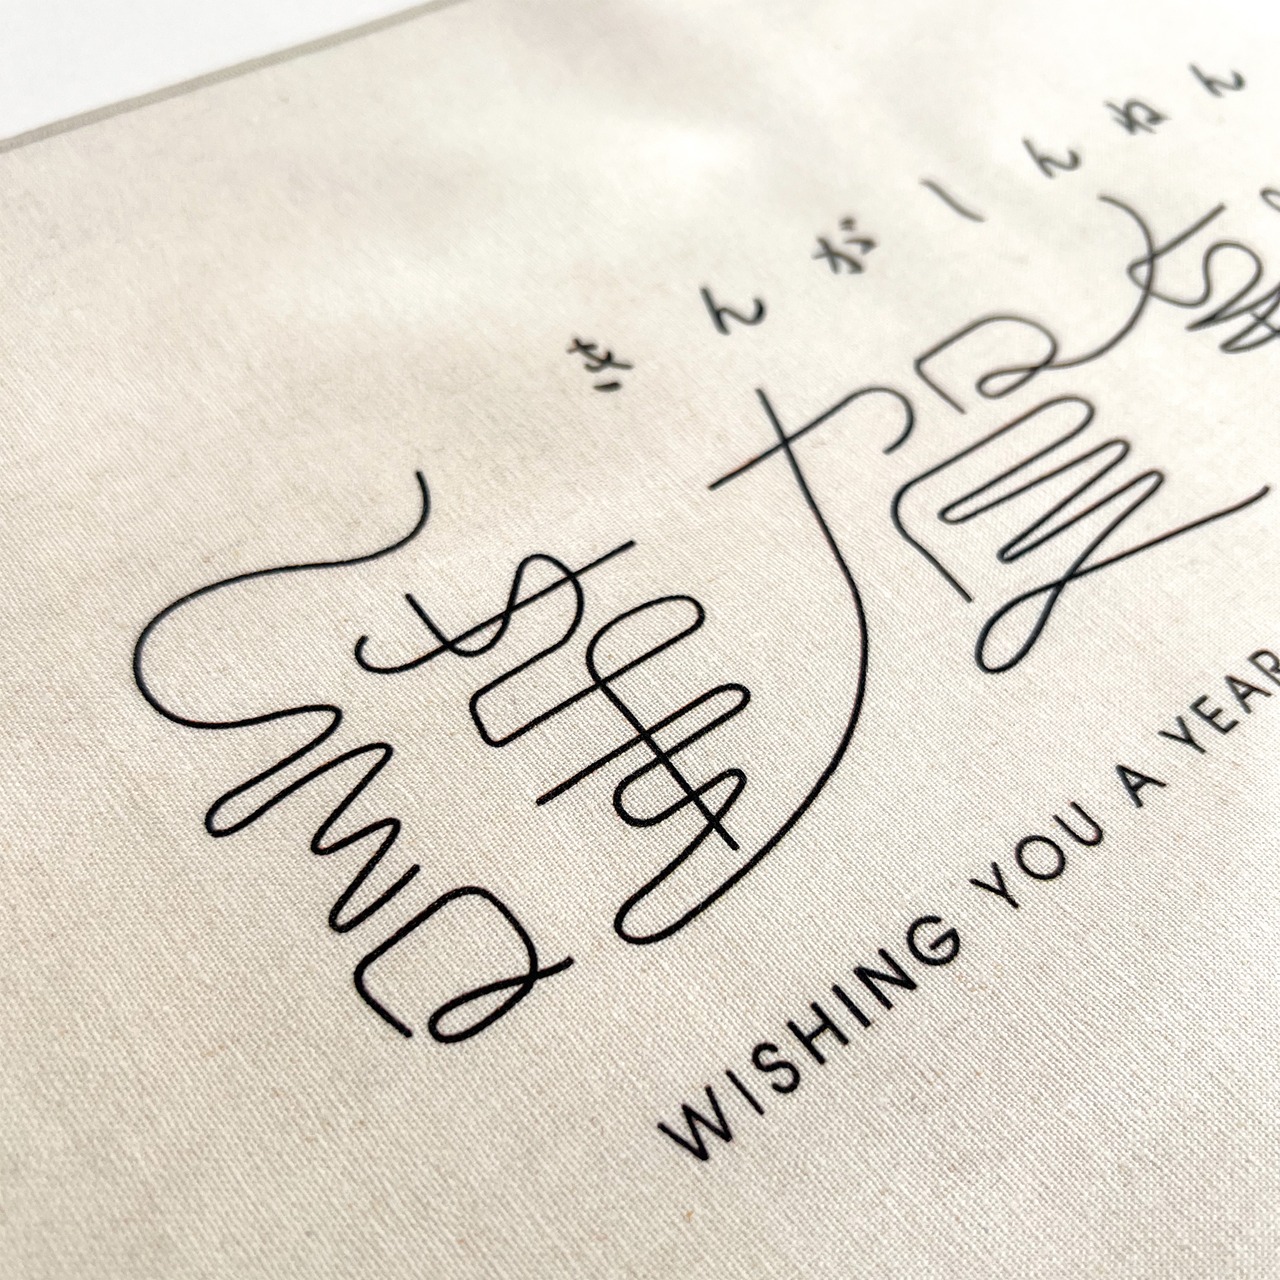 きんがしんねん
謹賀新
WISHING YOU A YEAR